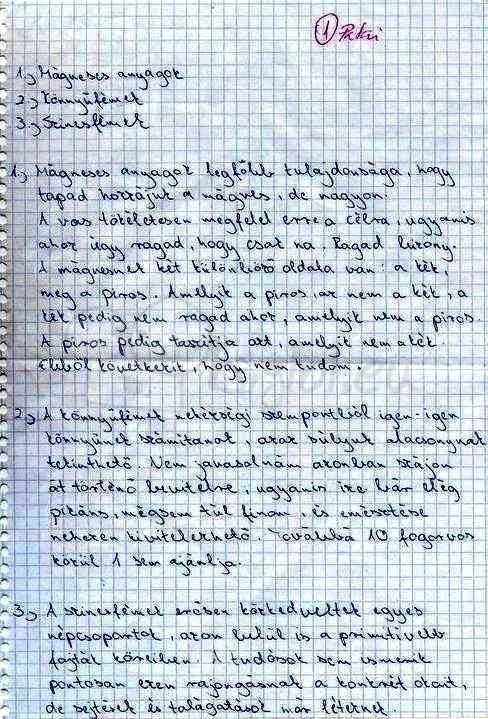 1 Petri
1., Mágneses anyagok
2., Könnyűfémek
3., Színesfémek
1., Mágneses anyagok legfőbb tulajdonsága, hogy
tapad hozzájuk a mágnes, de nagyon.
A vas tökéletesen megfelel erre a célra, ugyanis
ahoz úgy ragad, hogy csak na. Ragad bizony.
A mágnesnek két különböző oldala van: a kék,
meg a piros. Amellyik a piros, az nem a kék, a
kék pedig nem ragad ahoz, amelyik nem a piros.
A piros pedig taszítja azt, amelyik nem a kék.
Ebből következik, hogy nem tudom.
2., A könnyűfémek nehézségi szempontból igen-igen
könnyűnek számítanak, azaz súlyuk alacsonynak
tekinthető. Nem javasolnám azonban szájon
át történő bevitelre, ugyanis íze bár elég
pikáns, mégsem túl finom, és emésztése
nehezen kivitelezhető. Továbbá 10 fogorvos
közül 1 sem ajánlja.
3., A színesfémek erősen közkedveltek egyes
népcsoportok, azon belül is a primitívebb
fajták köreiben. A tudósok sem ismerik
pontosan ezen rajongásnak a konkrét okait,
de sejtések és találgatások már léteznek.